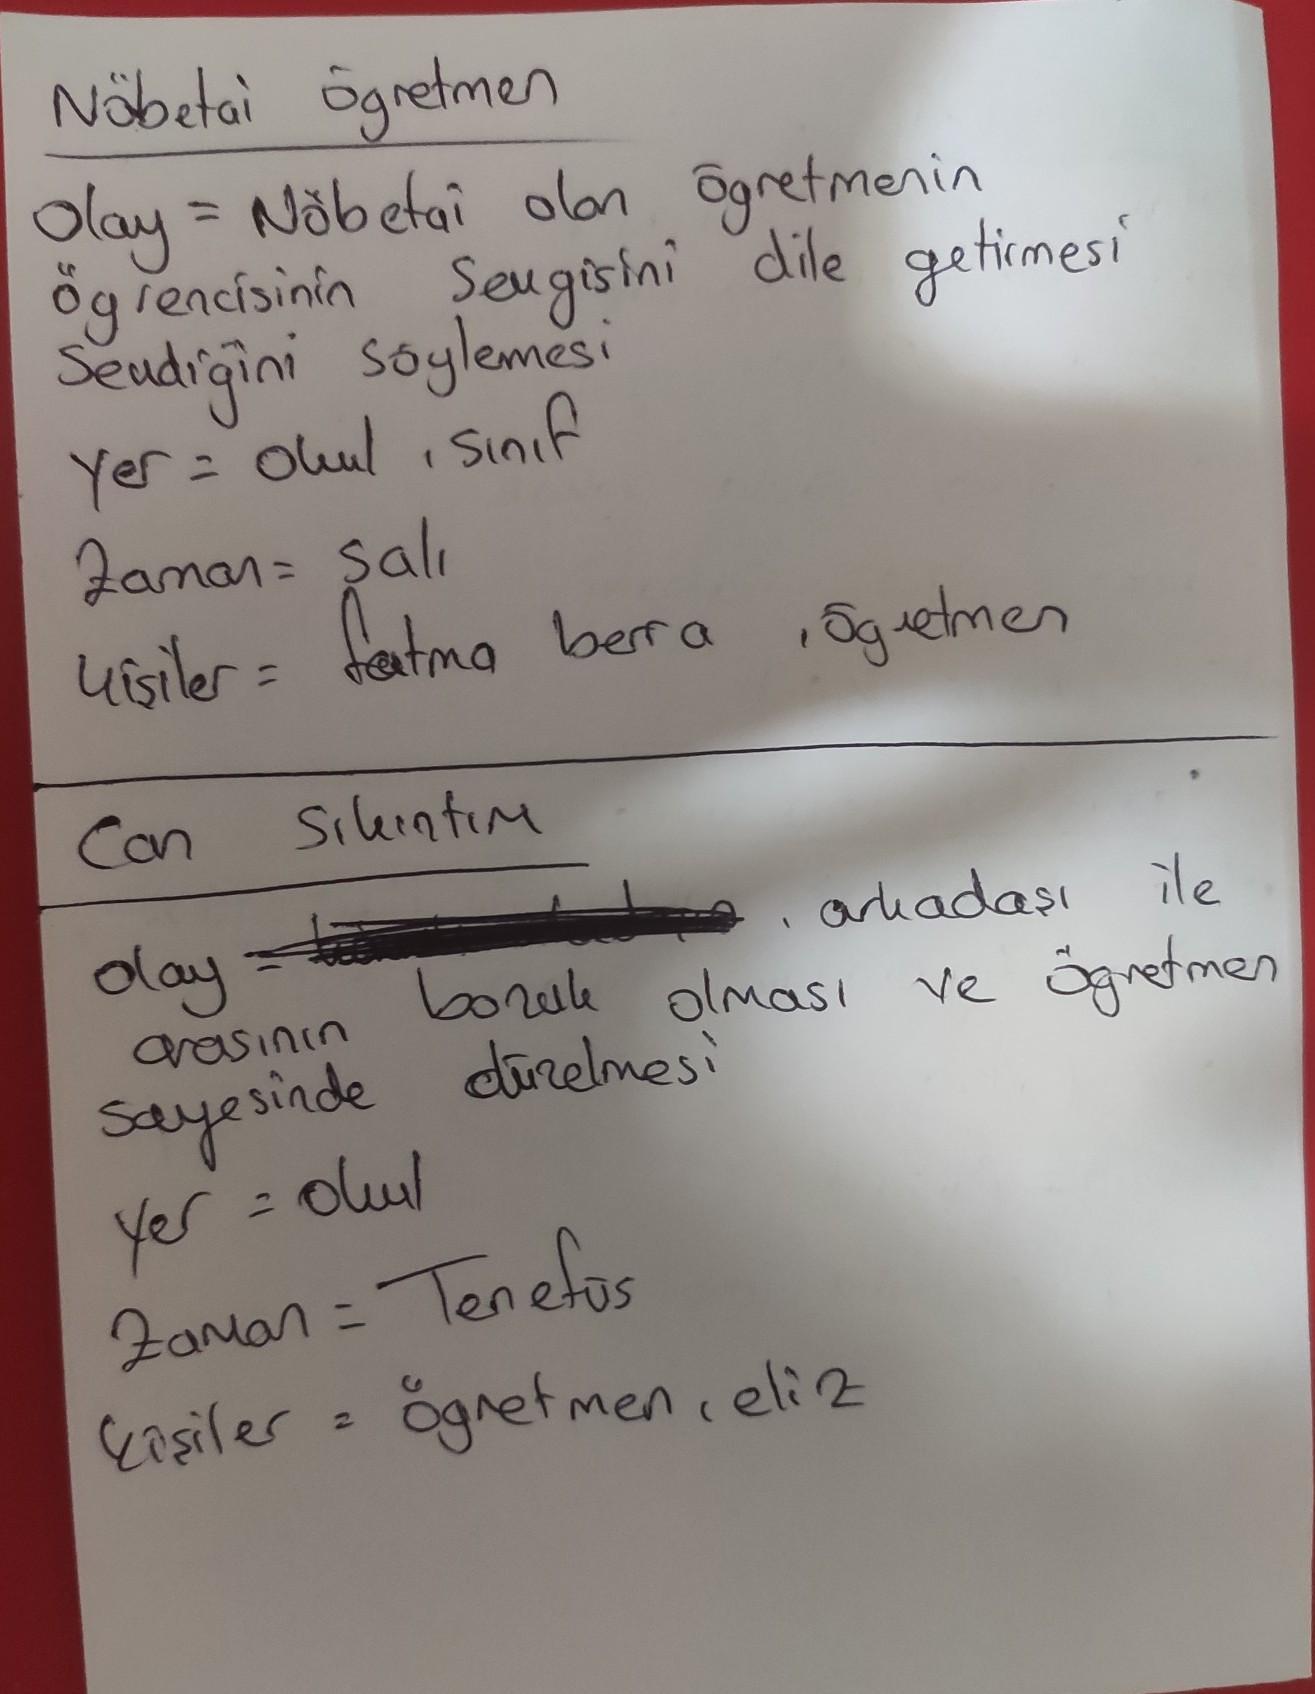 Nöbetci öğretmen
Olay = Nöbetci olan öğretmenin
Öğrencisinin Sevgisini dile getirmesi
Sevdiğini söylemesi
Yer = Okul, Sınıf
Zaman = Salı
Kişiler = fatma berra, Öğretmen
Can Sıkıntım
Olay = , arkadaşı ile
arasının bozuk olması ve öğretmen
sayesinde düzelmesi
Yer = Okul
Zaman = Tenefüs
Kişiler = öğretmen, eliz